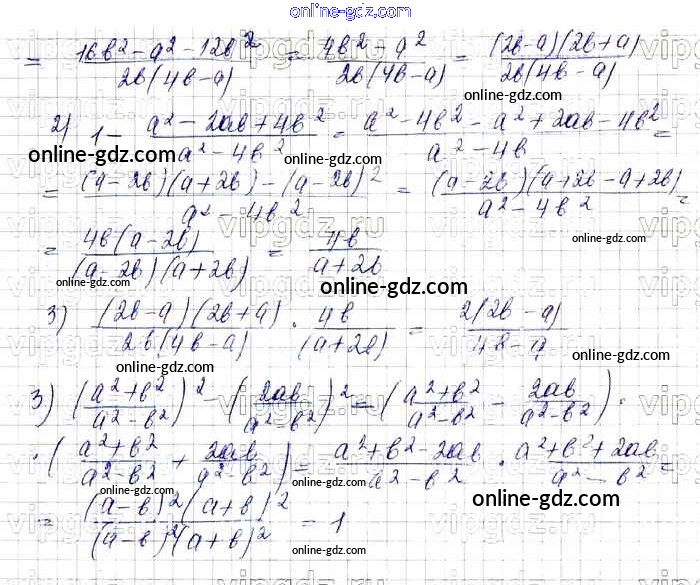 online-gdz.com
= (16b² - a² - 12b²)/(2b(4b-a)) = (4b² - a²)/(2b(4b-a)) = ((2b-a)(2b+a))/(2b(4b-a))
online-gdz.com online-gdz.com
2) 1 - (a² - 2ab + 4b²)/(a² - 4b²) = (a² - 4b² - a² + 2ab - 4b²)/(a² - 4b) =
online-gdz.com online-gdz.com online-gdz.com
= ((a-2b)(a+2b) - (a-2b)²)/(a² - 4b²) = ((a-2b)(a+2b-a+2b))/(a² - 4b²) =
online-gdz.com
= (4b(a-2b))/((a-2b)(a+2b)) = 4b/(a+2b)
online-gdz.com online-gdz.com
3) ((2b-a)(2b+a))/(2b(4b-a)) · 4b/(a+2b) = (2(2b-a))/(4b-a)
online-gdz.com
3) ((a²+b²)/(a²-b²))² - (2ab/(a²-b²))² = ((a²+b²)/(a²-b²) - 2ab/(a²-b²)) ·
· ((a²+b²)/(a²-b²) + 2ab/(a²-b²)) = (a²+b²-2ab)/(a²-b²) · (a²+b²+2ab)/(a²-b²) =
online-gdz.com online-gdz.com online-gdz.com
= ((a-b)²(a+b)²)/((a-b)²(a+b)²) = 1
online-gdz.com
vipgdz.ru